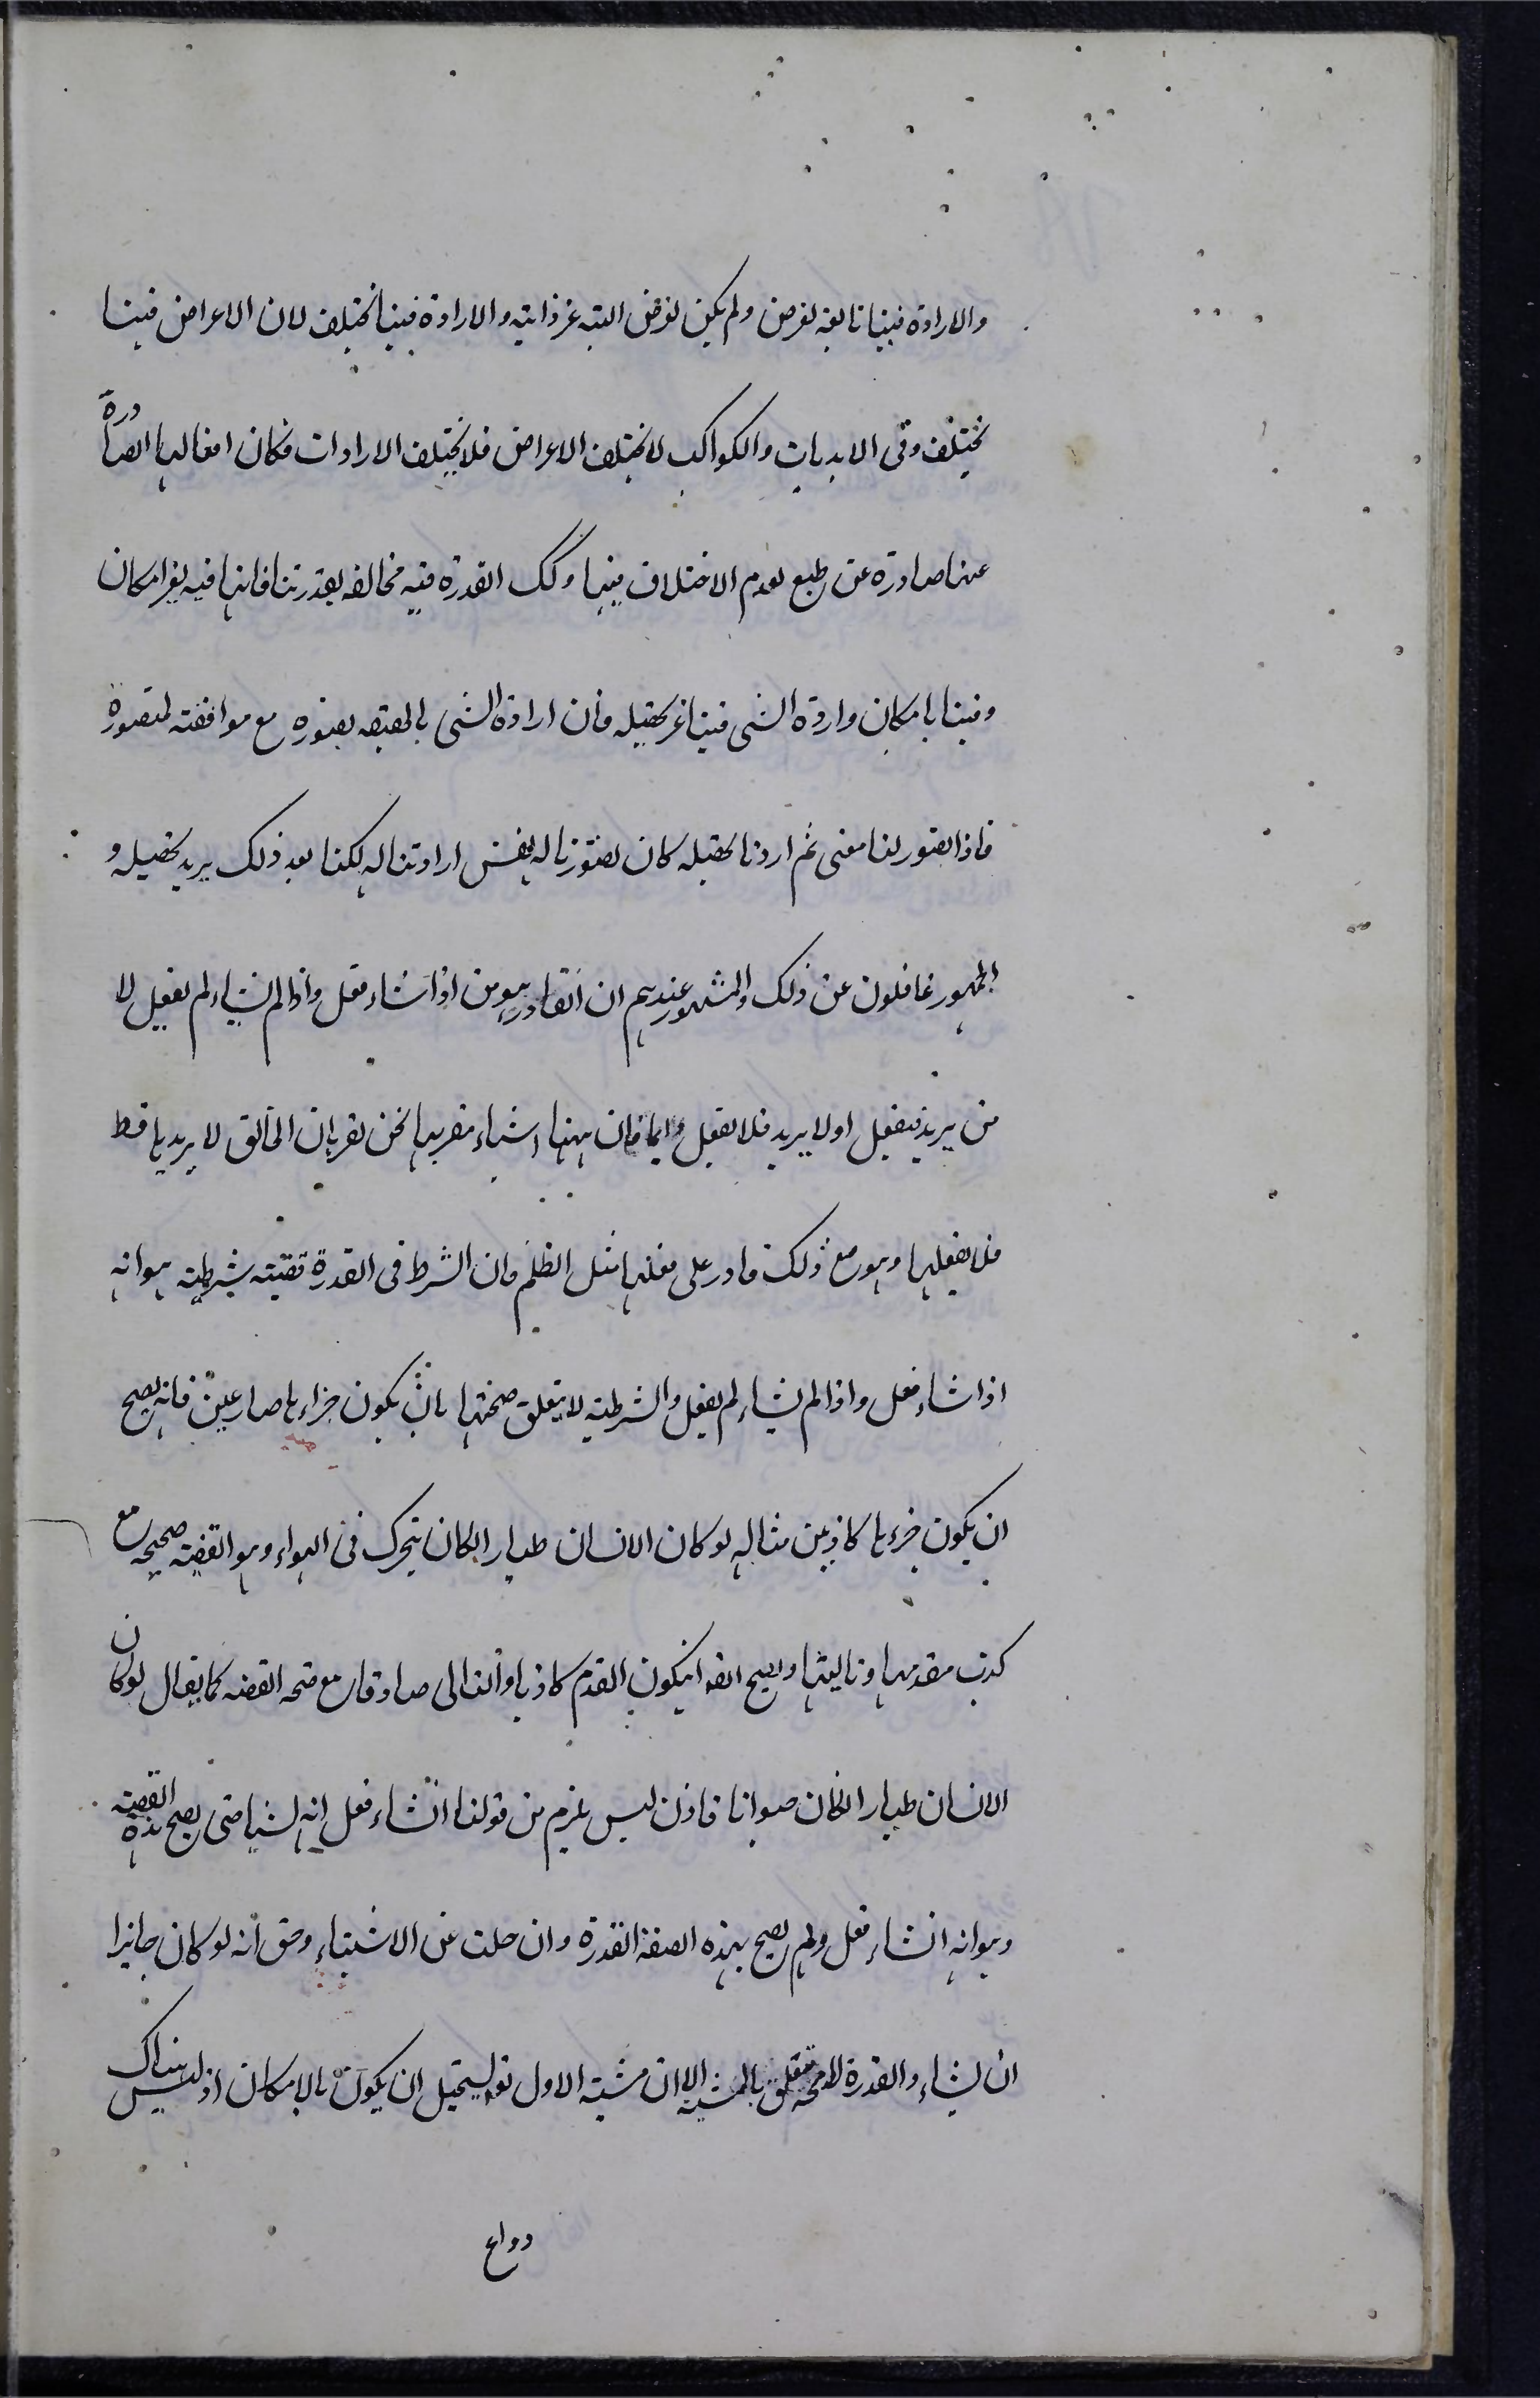 والارادة فينا تابعة لغرض ولم يكن لغرض البتة غير ذاتية والارادة فينا تختلف لان الاعراض فينا
تختلف وفى الابديات والكواكب لا تختلف الاعراض فلا تختلف الارادات فكان افعالها الصادرة
عنها صادرة عن طبع لعدم الاختلاف فيها وكك القدرة فيه مخالفه لقدرتنا فانها فيه بغير امكان
وفينا بامكان واردة الشى فينا غير تحصيله فان ارادة الشى بالحقيقه تصوره مع موافقته لمتصوره
فاذا تصور لنا معنى ثم اردنا تحصيله كان تصورنا له نفس ارادتنا له لكنا بعد ذلك يريد تحصيله و
الجمهور غافلون عن ذلك والمشهور عندهم ان القادر هو من اذا شاء فعل واذا لم يشاء لم يفعل لا
من يريد فيفعل او لا يريد فلا يفعل دايما فان ههنا اشياء مقربها نحن نقر بان الخالق لا يريدها قط
فلا يفعلها وهو مع ذلك قادر على فعلها مثل الظلم فان الشرط فى القدرة قضية شرطية هو انه
اذا شاء فعل واذا لم يشاء لم يفعل والشرطية لا يتعلق صحتها بان يكون جزاءها صادقين فانه يصح
ان يكون جزءها كاذبين مثاله لو كان الانسان طيارا لكان يتحرك فى الهواء وهو القضية صحيحه مع
كذب مقدمها وتاليها ويصح ايضا ان يكون القدم كاذبا والتالى صادقا مع صحه القضيه كما يقال لو كان
الانسان طيارا لكان حيوانا فاذن ليس يلزم من قولنا ان شاء فعل انه يشيا حتى يصح هذه القضية
وهو انه ان شاء فعل ولم يصح بهذه الصفة القدرة وان خلت عن الاشياء وحق انه لو كان جايزا
ان يشاء والقدرة متعلق بالمشية الا ان مشية الاول تع يستحيل ان يكون بالامكان اذ ليس هناك
دواع